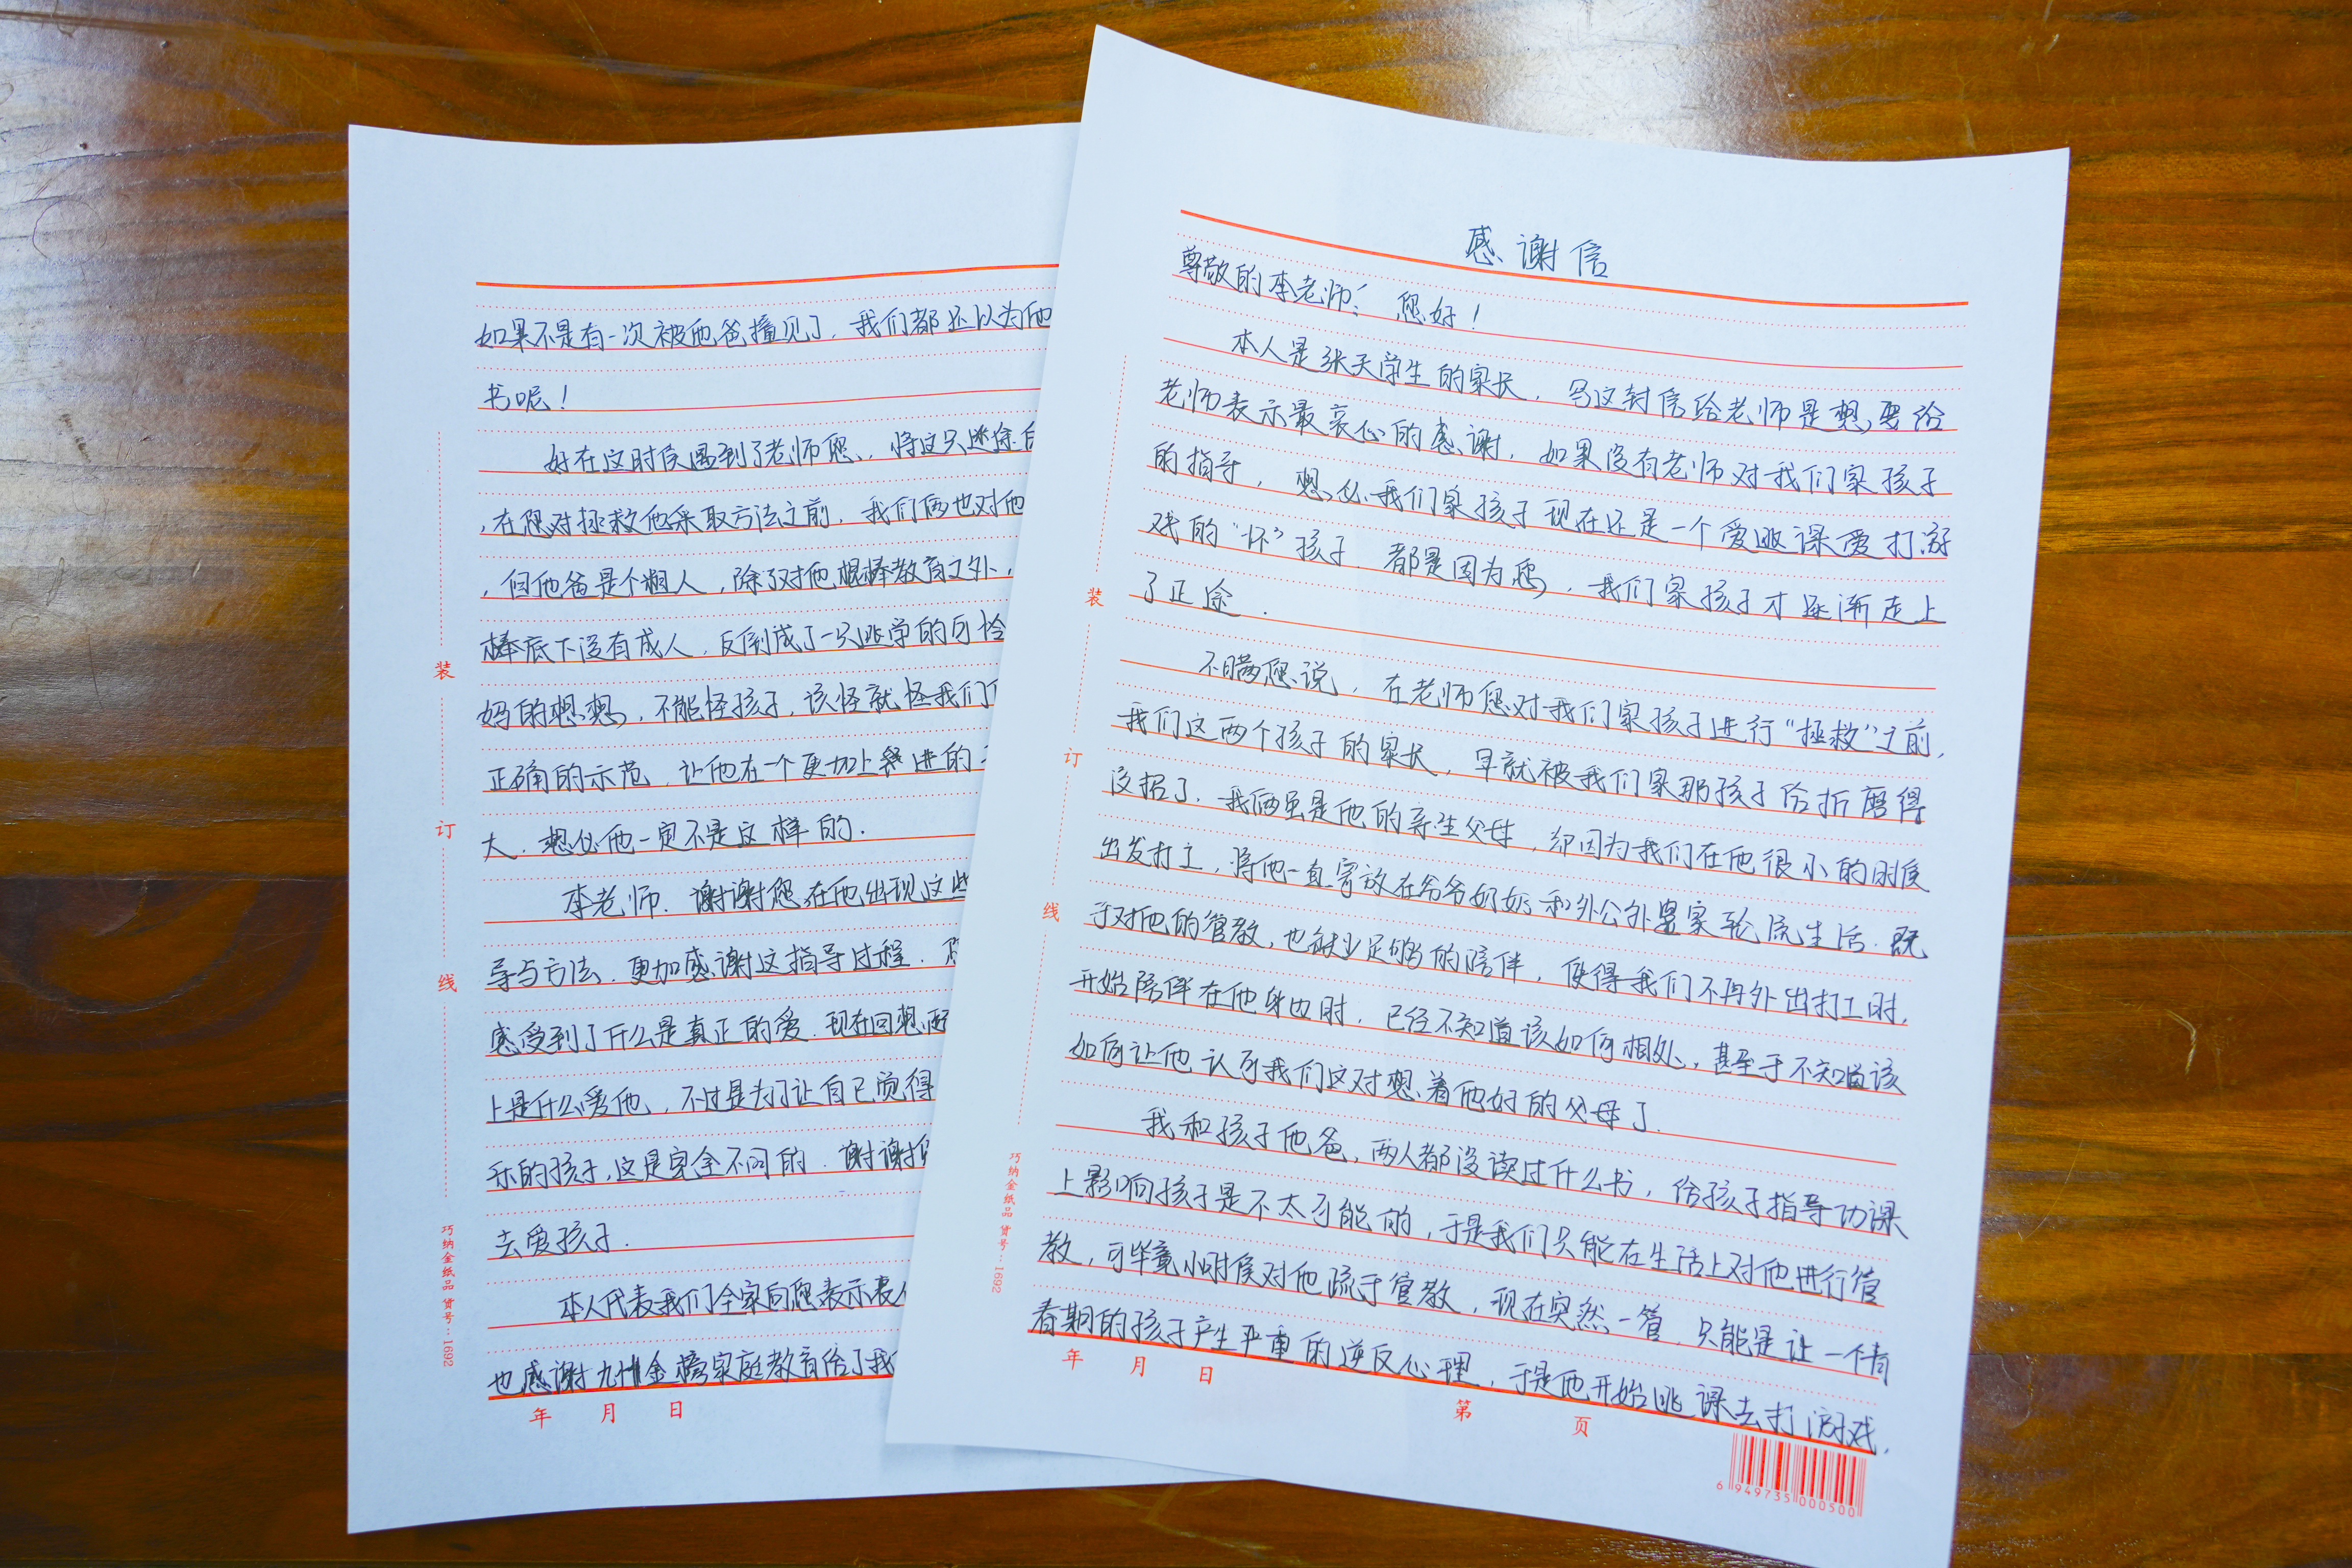 感谢信
尊敬的李老师： 您好！
本人是张天学生的家长，写这封信给老师是想要给
老师表示最衷心的感谢，如果没有老师对我们家孩子
的指导，想必我们家孩子现在还是一个爱逃课爱打游
戏的“坏”孩子．都是因为您，我们家孩子才逐渐走上
了正途．
不瞒您说，在老师您对我们家孩子进行“拯救”之前，
我们这两个孩子的家长，早就被我们家那孩子给折磨得
没招了．我俩虽是他的亲生父母，却因为我们在他很小的时候
出发打工，将他一直寄放在爷爷奶奶和外公外婆家轮流生活．既
于对他的管教，也缺少足够的陪伴，使得我们不再外出打工时，
开始陪伴在他身边时，已经不知道该如何相处，甚至于不知道该
如何让他认可我们这对想着他好的父母了．
我和孩子他爸，两人都没读过什么书，给孩子指导功课
上影响孩子是不太可能的，于是我们只能在生活上对他进行管
教，可毕竟小时候对他疏于管教，现在突然一管，只能是让一个青
春期的孩子产生严重的逆反心理，于是他开始逃课去打游戏，
装
订
线
巧纳金纸品 货号：1692
年 月 日
第 页
6 949735 000500
如果不是有一次被他爸撞见了，我们都还以为他
书呢！
好在这时候遇到了老师您，将这只迷途
，在您对拯救他采取方法之前，我们俩也对他
，但他爸是个粗人，除了对他棍棒教育之外，
棒底下没有成人，反倒成了一只逃学的可怜
妈的想想，不能怪孩子，该怪就怪我们
正确的示范，让他在一个更加上进的
大．想必他一定不是这样的．
李老师．谢谢您在他出现这些
导与方法．更加感谢这指导过程．
感受到了什么是真正的爱．现在回想
上是什么爱他，不过是为了让自己觉得
乐的孩子，这是完全不同的．谢谢
去爱孩子．
本人代表我们全家向您表示衷
也感谢九州金榜家庭教育给了我
装
订
线
巧纳金纸品 货号：1692
年 月 日